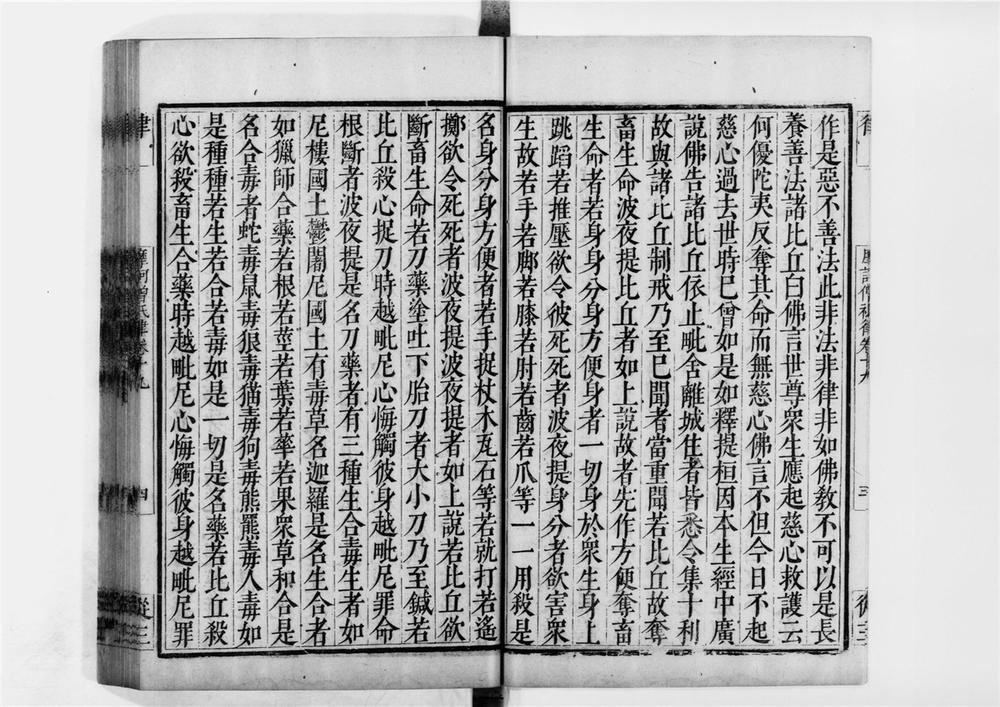 作是惡不善法此非法非律非如佛教不可以是長
養善法諸比丘白佛言世尊衆生應起慈心救護云
何優陀夷反奪其命而無慈心佛言不但今日不起
慈心過去世時已曾如是如釋提桓因本生經中廣
說佛告諸比丘依止毗舍離城住者皆悉令集十利
故與諸比丘制戒乃至已聞者當重聞若比丘故奪
畜生命波夜提比丘者如上說故者先作方便奪畜
生命者若身身分身方便身者一切身於衆生身上
跳蹈若推壓欲令彼死死者波夜提身分者欲害衆
生故若手若腳若膝若肘若齒若爪等一一用殺是
名身分身方便者若手捉杖木瓦石等若就打若遙
擲欲令死死者波夜提波夜提者如上說若比丘欲
斷畜生命若刀藥塗吐下胎刀者大小刀乃至鍼若
比丘殺心捉刀時越毗尼心悔觸彼身越毗尼罪命
根斷者波夜提是名刀藥者有三種生合毒生者如
尼樓國土鬱闍尼國土有毒草名迦羅是名生合者
如獵師合藥若根若莖若葉若華若果衆草和合是
名合毒者蛇毒鼠毒狼毒猫毒狗毒熊羆毒人毒如
是種種若生若合若毒如是一切是名藥若比丘殺
心欲殺畜生合藥時越毗尼心悔觸彼身越毗尼罪
律
摩訶僧祇律卷十九
四
從三